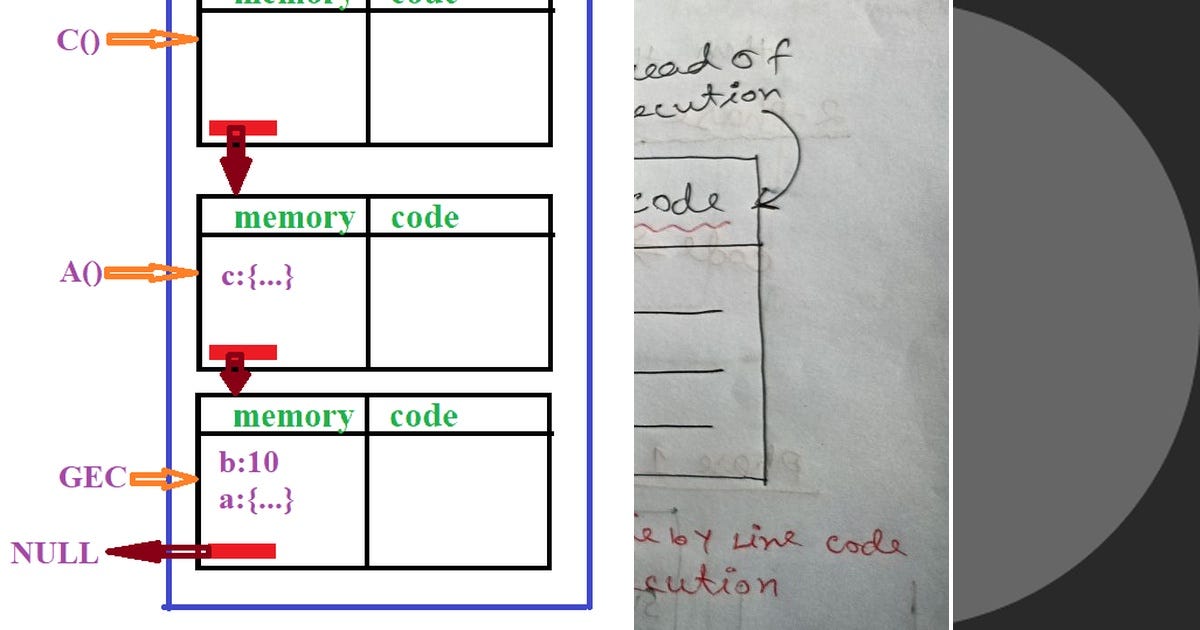 memory code
C()
memory code
A()
c:{...}
memory code
GEC
b:10
a:{...}
NULL
ead of
ecution
code
e by Line code
cution